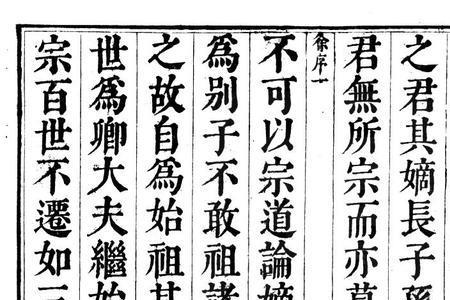 之君其嫡長子孫
君無所宗而亦莫
序一
不可以宗道論嫡
爲别子不敢祖諸
之故自爲始祖其
世爲卿大夫繼始
宗百世不遷如